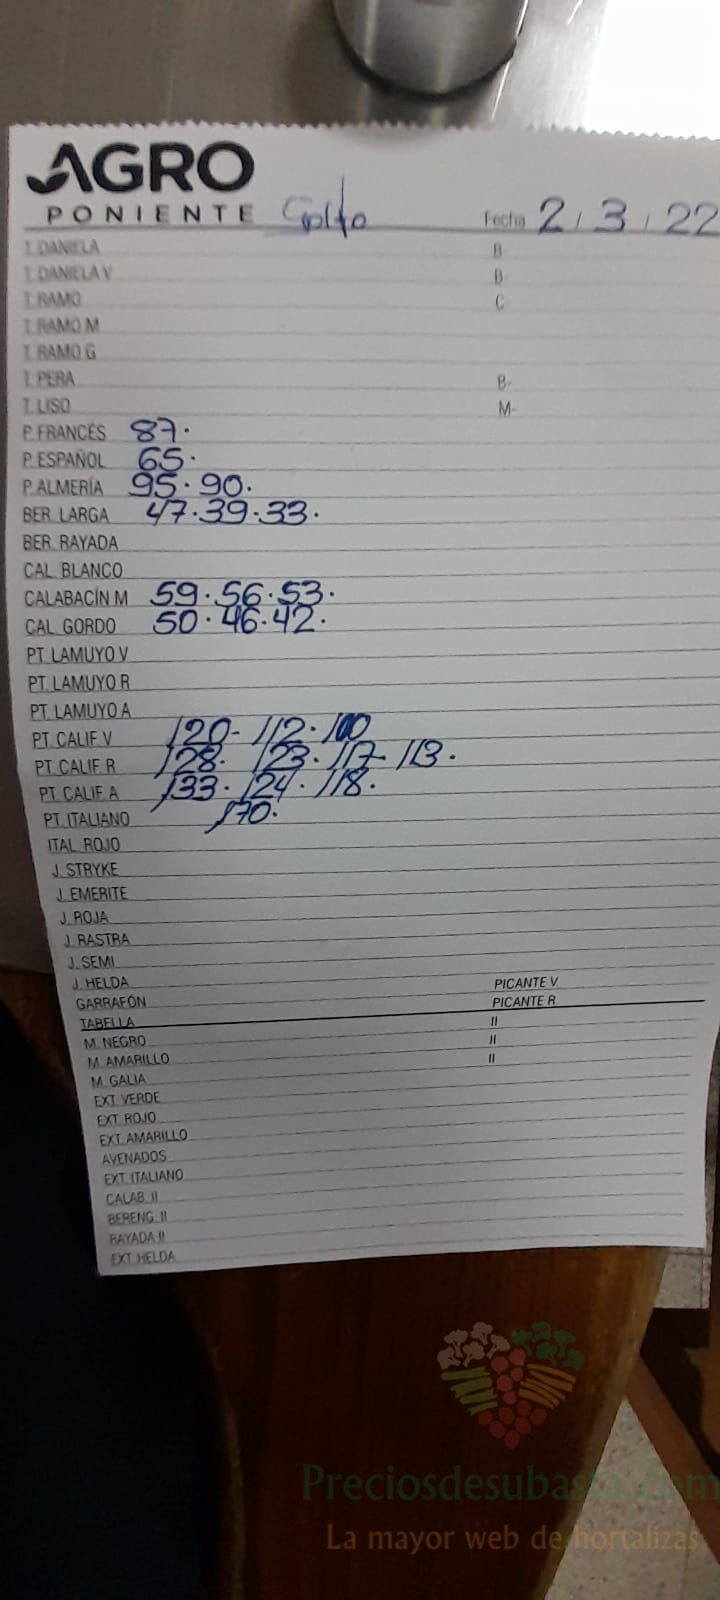 AGRO
PONIENTE Golfo Fecha 2 / 3 / 22
T. DANIELA B-
T. DANIELA V B-
T. RAMO C-
T. RAMO M
T. RAMO G
T. PERA B-
T. LISO M-
P. FRANCÉS 87.
P. ESPAÑOL 65.
P. ALMERÍA 95. 90.
BER. LARGA 47. 39. 33.
BER. RAYADA
CAL. BLANCO
CALABACÍN M 59. 56. 53.
CAL. GORDO 50. 46. 42.
PT. LAMUYO V
PT. LAMUYO R
PT. LAMUYO A
PT. CALIF. V 120- 112. 100
PT. CALIF. R 128. 123. 117- 113.
PT. CALIF. A 133. 124. 118.
PT. ITALIANO 170.
ITAL. ROJO
J. STRYKE
J. EMERITE
J. ROJA
J. RASTRA
J. SEMI
J. HELDA PICANTE V
GARRAFÓN PICANTE R
TABELLA II
M. NEGRO II
M. AMARILLO II
M. GALIA
EXT. VERDE
EXT. ROJO
EXT. AMARILLO
AVENADOS
EXT. ITALIANO
CALAB. II
BERENG. II
RAYADA II
EXT. HELDA
Preciosdesubasta.com
La mayor web de hortalizas